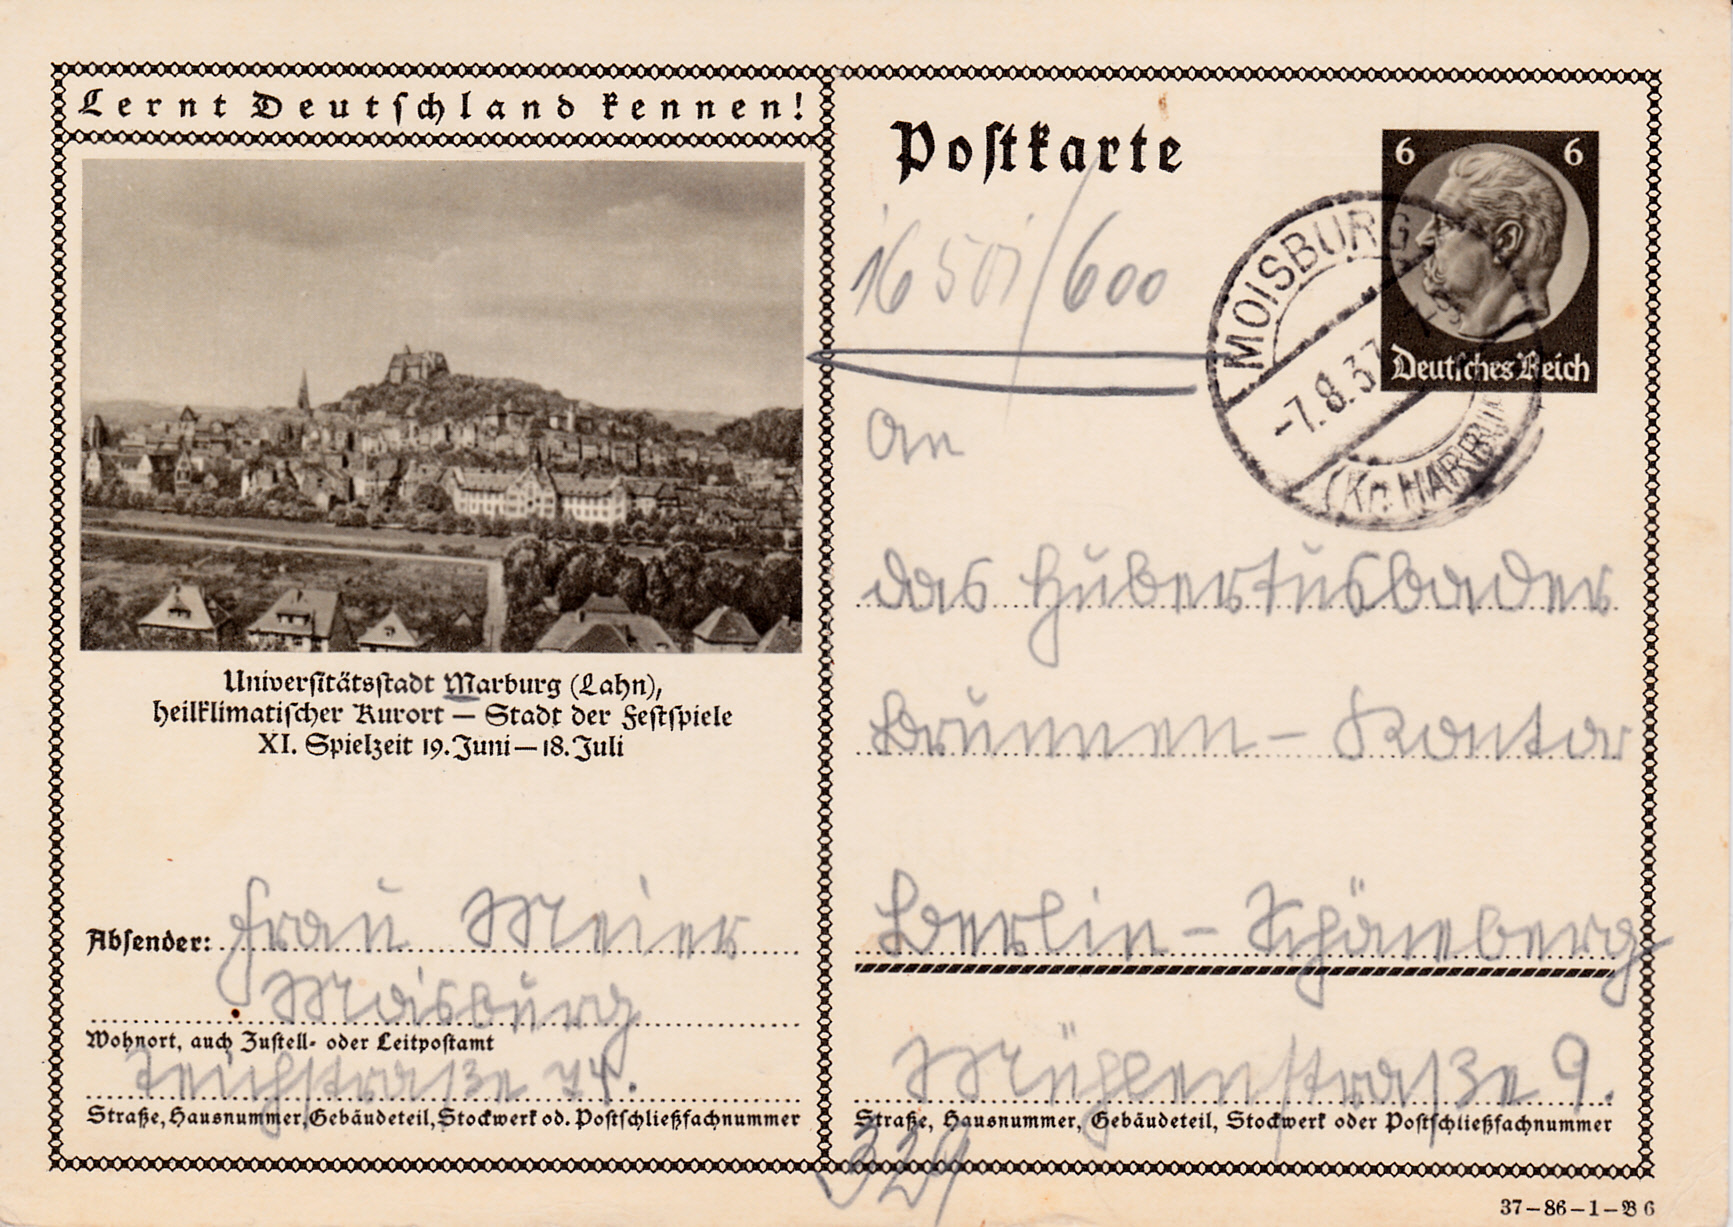 Lernt Deutschland kennen!
Universitätsstadt Marburg (Lahn),
heilklimatischer Kurort — Stadt der Festspiele
XI. Spielzeit 19. Juni — 18. Juli
Absender: Frau Meier
Moisburg
Wohnort, auch Zustell- oder Leitpostamt
Teichstraße 74.
Straße, Hausnummer, Gebäudeteil, Stockwerk od. Postschließfachnummer
Postkarte
6 6
Deutsches Reich
MOISBURG
-7.8.37
(Kr. HARBURG
/600
An
das Hubertusbader
Brunnen - Kontor
Berlin - Schöneberg
Mühlenstraße 9.
Straße, Hausnummer, Gebäudeteil, Stockwerk oder Postschließfachnummer
329
37—86—1—B 6